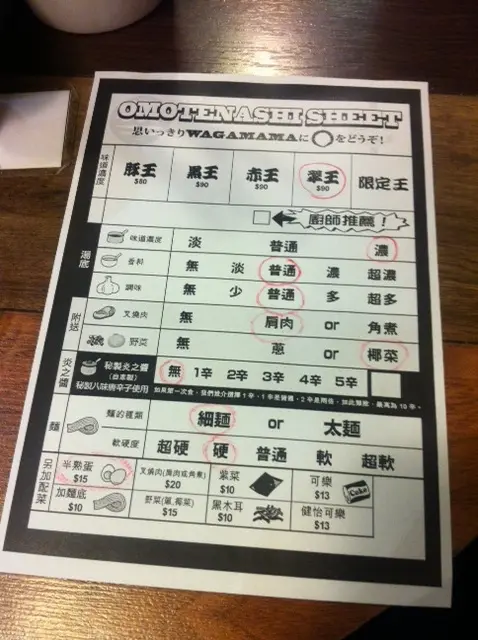 OMOTENASHI SHEET
思いっきりWAGAMAMAに◯をどうぞ!
味道濃度 豚王 $80 黒王 $90 赤王 $90 翠王 $90 限定王
廚師推薦!
湯底 味道濃度 淡 普通 濃
香料 無 淡 普通 濃 超濃
調味 無 少 普通 多 超多
附送 叉燒肉 無 肩肉 or 角煮
野菜 無 蔥 or 椰菜
炎之醬 秘製炎之醬 (自家製) 無 1辛 2辛 3辛 4辛 5辛
秘製八味唐辛子使用
麵 麵的種類 細麵 or 太麵
軟硬度 超硬 硬 普通 軟 超軟
另加配菜 半熟蛋 $15 叉燒肉(肩肉或角煮) $20 紫菜 $10 可樂 $13 Coke
加麵底 $10 野菜(蔥,椰菜) $15 黑木耳 $10 健怡可樂 $13